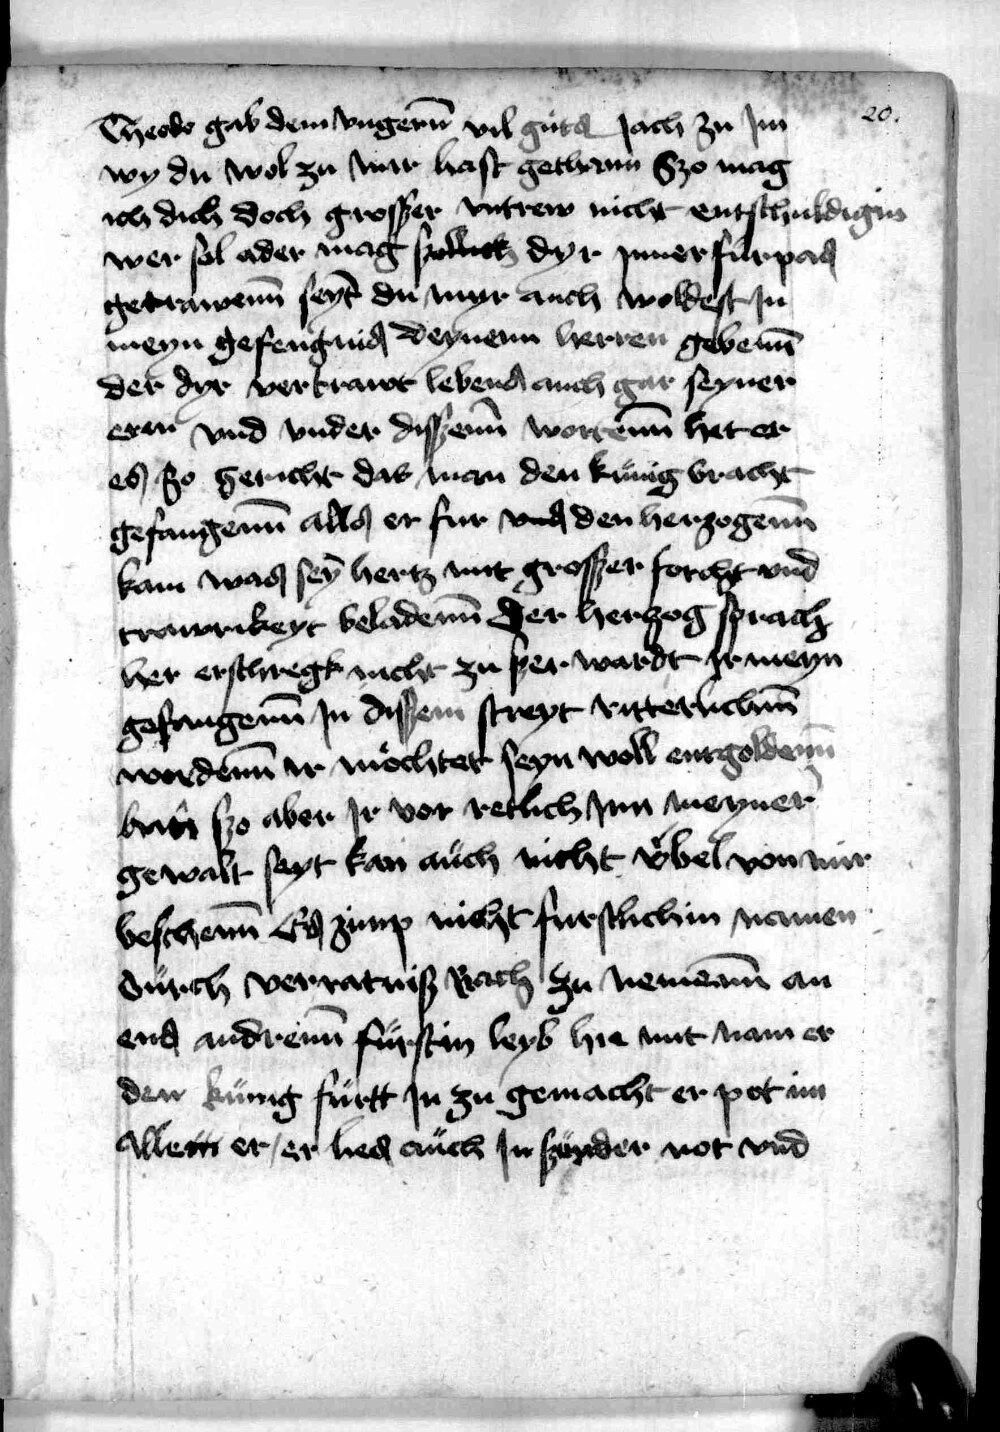 20.
Theodo gab dem vngerñ vil gütz Jach zu Jm
wy du wol zu mir hast gethann Szo mag
ich dich doch grosser vntrew nicht entschuldigin
wer sol ader mag dyr ymer fürpas
getrawenn seyt du myr auch woldest Jn
meyn gefengnis deynenn herren gebenn
der dyr vertrawt lebens auch gar seyner
eren vnd vnder dissenn wortenn het er
es so gericht das man den künig bracht
gefangenn alls er fur den herzogenn
kam was seyn hertz mit grosser forcht vnd
trawrikeyt beladenn Der herzog sprach
her erschregk nicht zu ser wardt Jr meyn
gefangenn Jn dissem streyt ritterlichnn
wordenn ir möchtet seyn woll entgoldenn
szo aber Jr vor retlich Jnn meyner
gewalt seyt kan aüch nicht vbel von mir
beschenn Es zimp nicht fürstlichim namen
dürch verratnisz Rach zu nemenn an
ends andrenn fürstin leyb hie mit nam er
den künig fürtt Jn zu gemacht er pot im
alle er / er lies aüch Jn not vnd